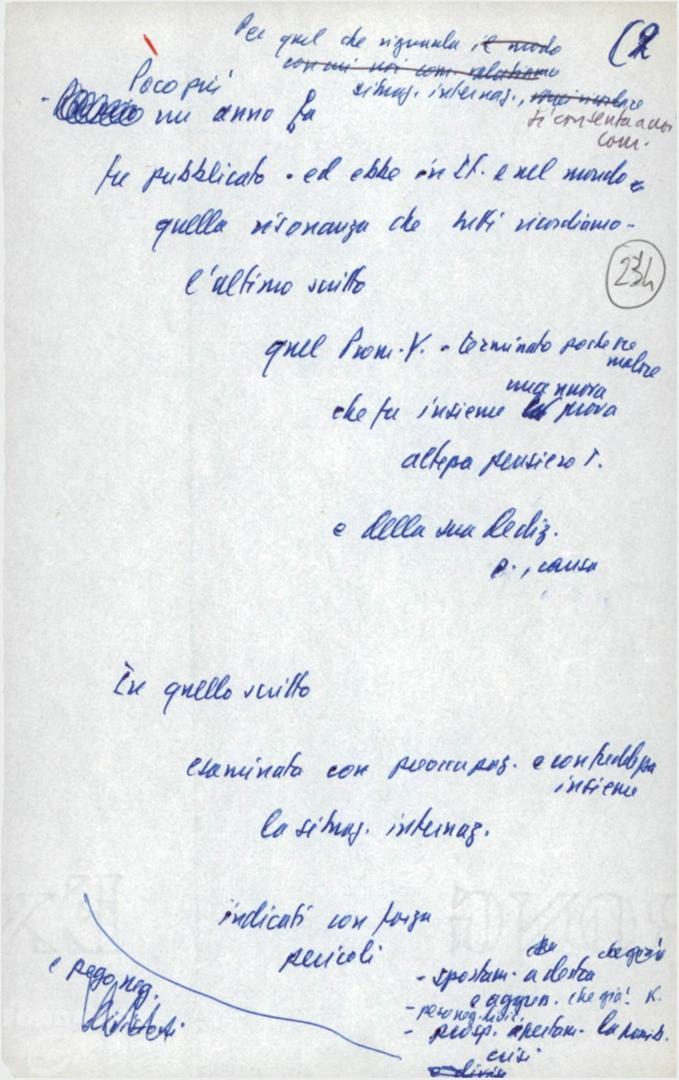 Per quel che riguarda il modo (2
con cui noi com. valutiamo
situaz. internaz.,
si consenta a noi
com.
Poco più
un anno fa
fu pubblicato - ed ebbe in It. e nel mondo
quella risonanza che tutti ricordiamo -
234
l'ultimo scritto
quel Prom. Y. - terminato poche ore
che fu insieme la prova
una nuova
altezza pensiero T.
e della sua dediz.
causa
In quello scritto
esaminata con preoccupaz. e con freddezza
insieme
la situaz. internaz.
indicati con forza
pericoli
- spostam. a destra
e aggrav. che già K.
- prosp. apertam. la possib.
crisi
e divis
e pegg. neg.